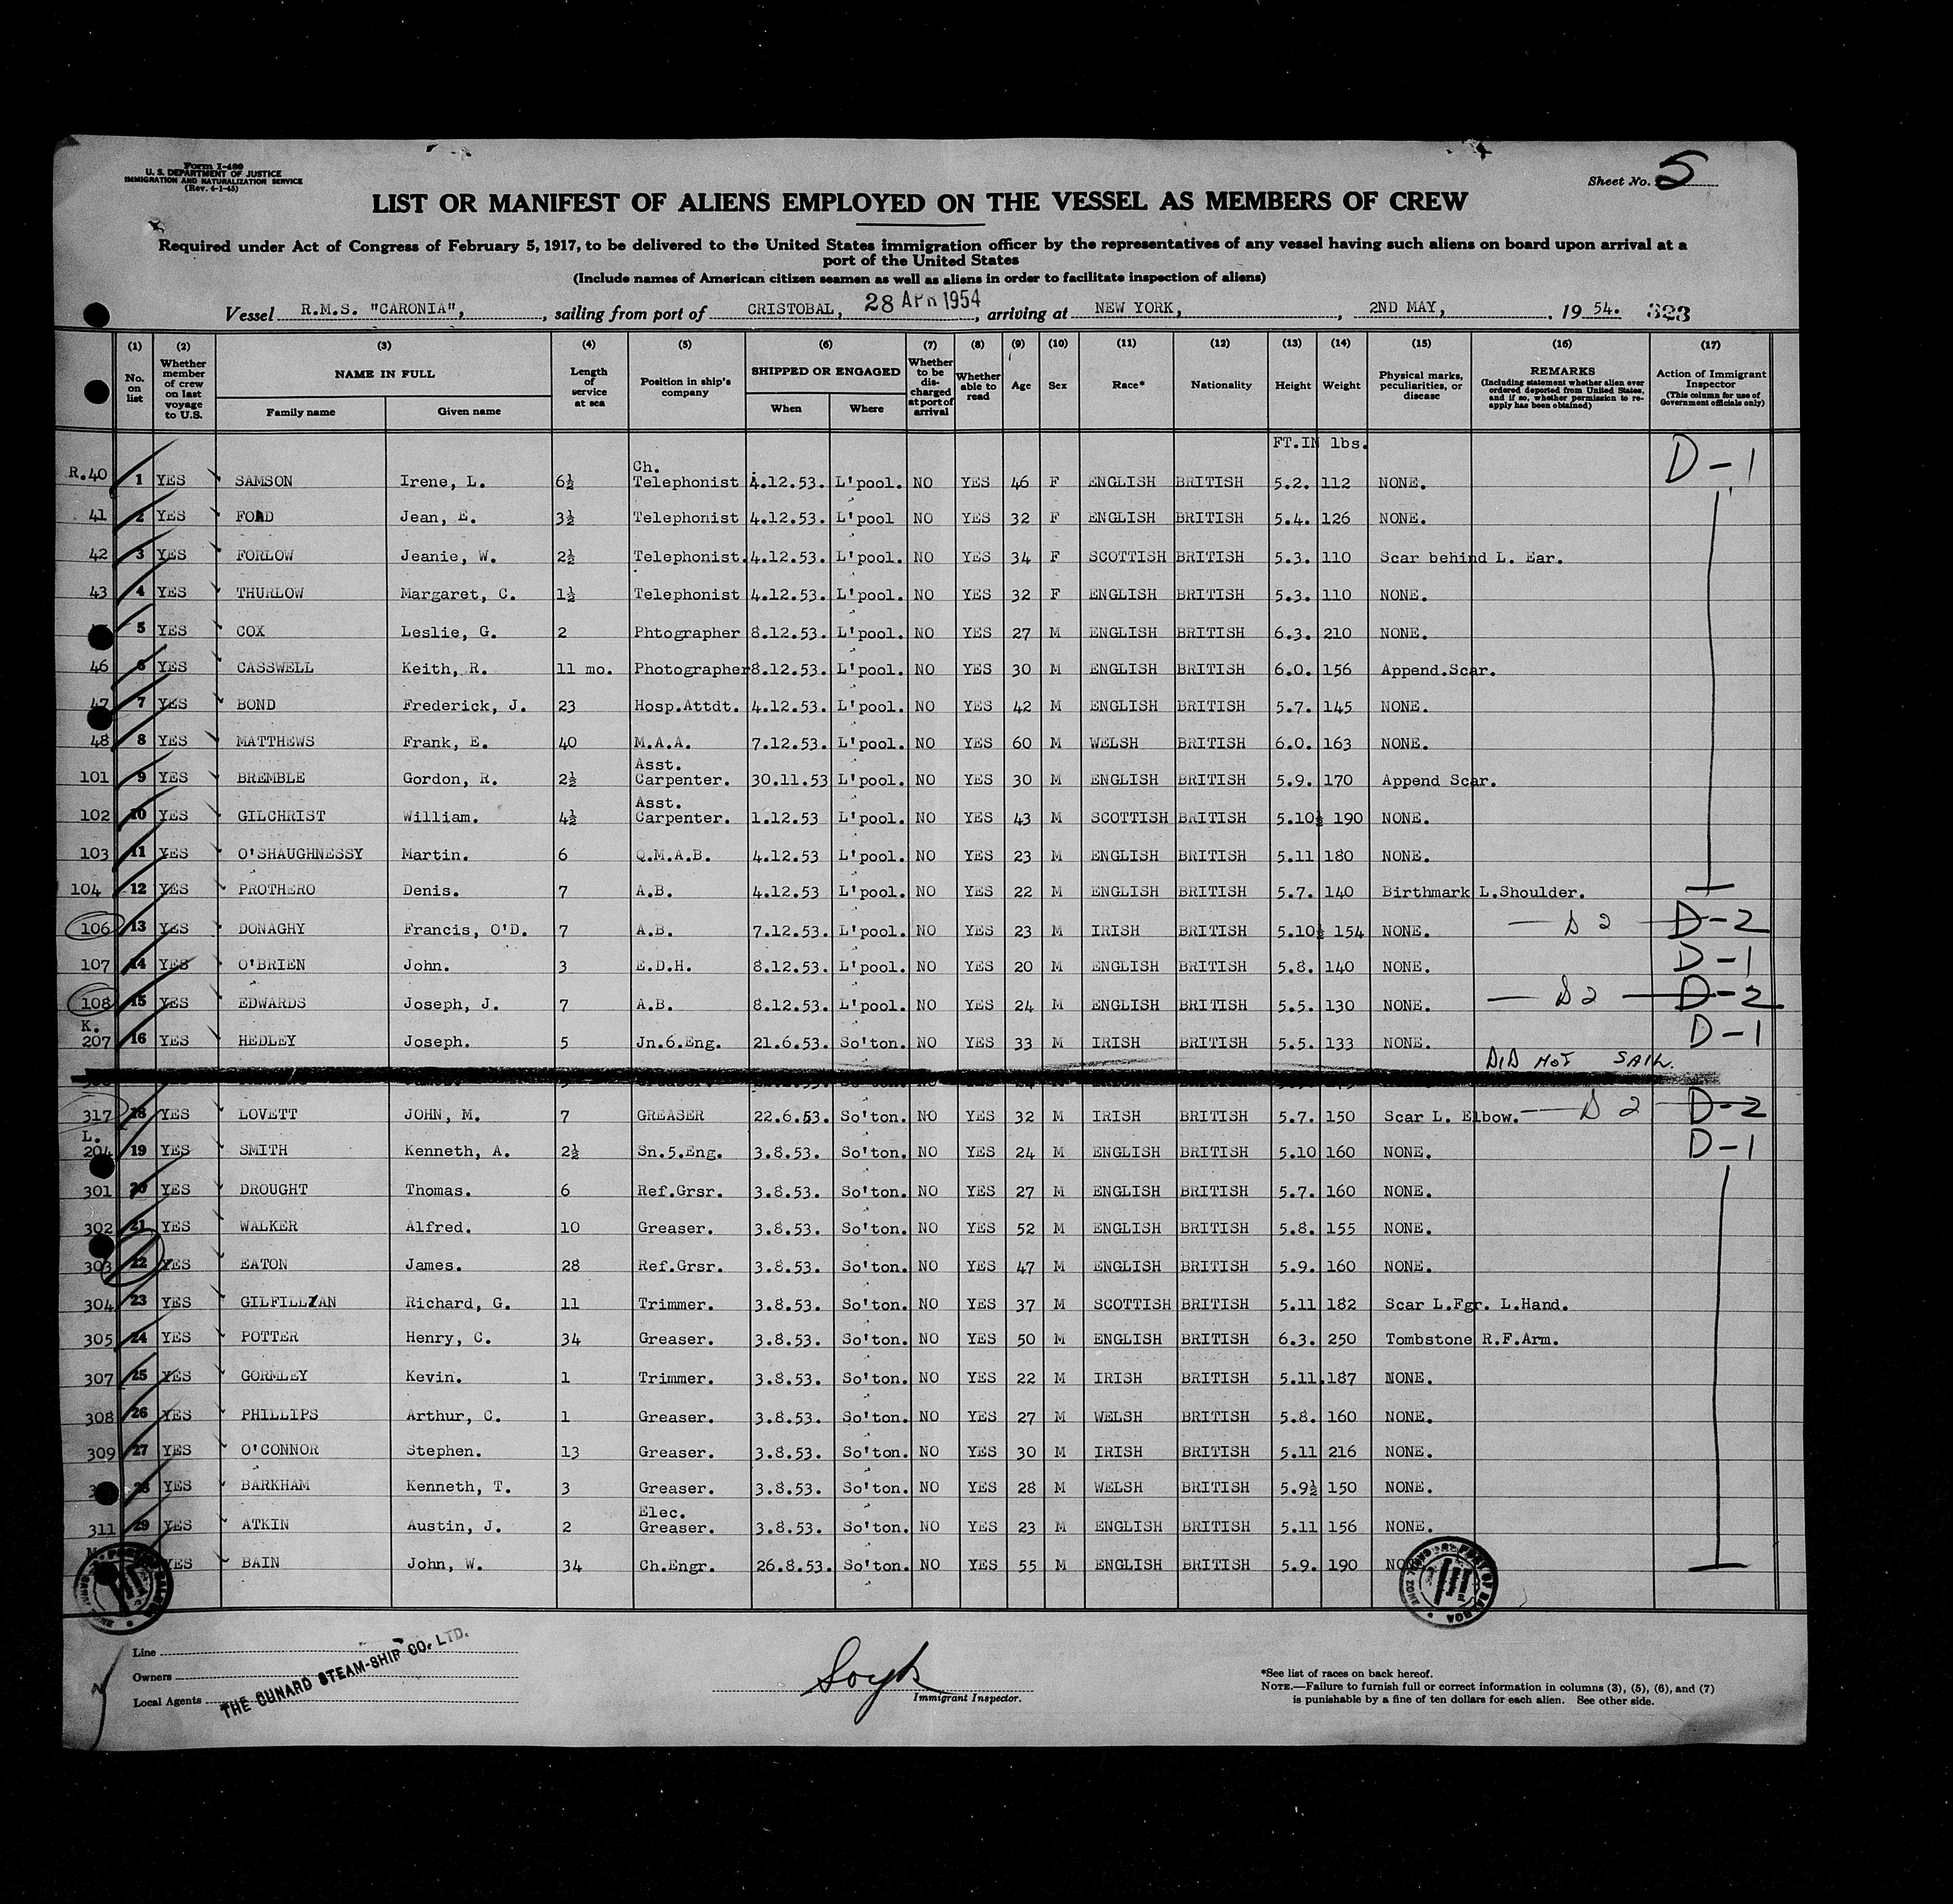 Form I-489
U. S. DEPARTMENT OF JUSTICE
IMMIGRATION AND NATURALIZATION SERVICE
(Rev. 4-1-45)
Sheet No. 5
LIST OR MANIFEST OF ALIENS EMPLOYED ON THE VESSEL AS MEMBERS OF CREW
Required under Act of Congress of February 5, 1917, to be delivered to the United States immigration officer by the representatives of any vessel having such aliens on board upon arrival at a
port of the United States
(Include names of American citizen seamen as well as aliens in order to facilitate inspection of aliens)
Vessel R.M.S. "CARONIA", , sailing from port of CRISTOBAL, 28 APR 1954 , arriving at NEW YORK, , 2ND MAY, , 19 54. 323
(1) (2) (3) (4) (5) (6) (7) (8) (9) (10) (11) (12) (13) (14) (15) (16) (17)
No. on list
Whether member of crew on last voyage to U.S.
NAME IN FULL
Family name Given name
Length of service at sea
Position in ship's company
SHIPPED OR ENGAGED
When Where
Whether to be discharged at port of arrival
Whether able to read
Age Sex Race* Nationality Height Weight
Physical marks, peculiarities, or disease
REMARKS
(Including statement whether alien ever ordered deported from United States, and if so, whether permission to re-apply has been obtained)
Action of Immigrant Inspector
(This column for use of Government officials only)
FT.IN lbs.
R.40 1 YES SAMSON Irene, L. 6½ Ch. Telephonist 4.12.53. L'pool. NO YES 46 F ENGLISH BRITISH 5.2. 112 NONE. D-1
41 2 YES FORD Jean, E. 3½ Telephonist 4.12.53. L'pool NO YES 32 F ENGLISH BRITISH 5.4. 126 NONE.
42 3 YES FORLOW Jeanie, W. 2½ Telephonist. 4.12.53. L'pool. NO YES 34 F SCOTTISH BRITISH 5.3. 110 Scar behind L. Ear.
43 4 YES THURLOW Margaret, C. 1½ Telephonist 4.12.53. L'pool. NO YES 32 F ENGLISH BRITISH 5.3. 110 NONE.
5 YES COX Leslie, G. 2 Phtographer 8.12.53. L'pool. NO YES 27 M ENGLISH BRITISH 6.3. 210 NONE.
46 6 YES CASSWELL Keith, R. 11 mo. Photographer 8.12.53. L'pool. NO YES 30 M ENGLISH BRITISH 6.0. 156 Append.Scar.
47 7 YES BOND Frederick, J. 23 Hosp.Attdt. 4.12.53. L'pool. NO YES 42 M ENGLISH BRITISH 5.7. 145 NONE.
48 8 YES MATTHEWS Frank, E. 40 M.A.A. 7.12.53. L'pool. NO YES 60 M WELSH BRITISH 6.0. 163 NONE.
101 9 YES BREMBLE Gordon, R. 2½ Asst. Carpenter. 30.11.53 L'pool. NO YES 30 M ENGLISH BRITISH 5.9. 170 Append Scar.
102 10 YES GILCHRIST William. 4½ Asst. Carpenter. 1.12.53 L'pool. NO YES 43 M SCOTTISH BRITISH 5.10½ 190 NONE.
103 11 YES O'SHAUGHNESSY Martin. 6 Q.M.A.B. 4.12.53 L'pool. NO YES 23 M ENGLISH BRITISH 5.11 180 NONE.
104 12 YES PROTHERO Denis. 7 A.B. 4.12.53 L'pool. NO YES 22 M ENGLISH BRITISH 5.7. 140 Birthmark L.Shoulder.
106 13 YES DONAGHY Francis, O'D. 7 A.B. 7.12.53. L'pool. NO YES 23 M IRISH BRITISH 5.10½ 154 NONE. — D 2 — D-2
107 14 YES O'BRIEN John. 3 E.D.H. 8.12.53. L'pool. NO YES 20 M ENGLISH BRITISH 5.8. 140 NONE. D-1
108 15 YES EDWARDS Joseph, J. 7 A.B. 8.12.53. L'pool. NO YES 24 M ENGLISH BRITISH 5.5. 130 NONE. — D 2 — D-2
K. 207 16 YES HEDLEY Joseph. 5 Jn.6.Eng. 21.6.53. So'ton. NO YES 33 M IRISH BRITISH 5.5. 133 NONE. D-1
DID NOT SAIL.
317 18 YES LOVETT JOHN, M. 7 GREASER 22.6.53. So'ton. NO YES 32 M IRISH BRITISH 5.7. 150 Scar L. Elbow. — D 2 — D-2
L. 204 19 YES SMITH Kenneth, A. 2½ Sn.5.Eng. 3.8.53. So'ton. NO YES 24 M ENGLISH BRITISH 5.10 160 NONE. D-1
301 20 YES DROUGHT Thomas. 6 Ref.Grsr. 3.8.53. So'ton. NO YES 27 M ENGLISH BRITISH 5.7. 160 NONE.
302 21 YES WALKER Alfred. 10 Greaser. 3.8.53. So'ton. NO YES 52 M ENGLISH BRITISH 5.8. 155 NONE.
303 22 YES EATON James. 28 Ref.Grsr. 3.8.53. So'ton. NO YES 47 M ENGLISH BRITISH 5.9. 160 NONE.
304 23 YES GILFILLIAN Richard, G. 11 Trimmer. 3.8.53. So'ton. NO YES 37 M SCOTTISH BRITISH 5.11 182 Scar L.Fgr. L.Hand.
305 24 YES POTTER Henry, C. 34 Greaser. 3.8.53. So'ton. NO YES 50 M ENGLISH BRITISH 6.3. 250 Tombstone R.F.Arm.
307 25 YES GORMLEY Kevin. 1 Trimmer. 3.8.53. So'ton. NO YES 22 M IRISH BRITISH 5.11. 187 NONE.
308 26 YES PHILLIPS Arthur, C. 1 Greaser. 3.8.53. So'ton. NO YES 27 M WELSH BRITISH 5.8. 160 NONE.
309 27 YES O'CONNOR Stephen. 13 Greaser. 3.8.53. So'ton. NO YES 30 M IRISH BRITISH 5.11 216 NONE.
28 YES BARKHAM Kenneth, T. 3 Greaser. 3.8.53. So'ton. NO YES 28 M WELSH BRITISH 5.9½ 150 NONE.
311 29 YES ATKIN Austin, J. 2 Elec. Greaser. 3.8.53. So'ton. NO YES 23 M ENGLISH BRITISH 5.11 156 NONE.
YES BAIN John, W. 34 Ch.Engr. 26.8.53. So'ton. NO YES 55 M ENGLISH BRITISH 5.9. 190 NONE.
Line
Owners
Local Agents
THE CUNARD STEAM-SHIP CO. LTD.
Immigrant Inspector.
*See list of races on back hereof.
NOTE.—Failure to furnish full or correct information in columns (3), (5), (6), and (7)
is punishable by a fine of ten dollars for each alien. See other side.